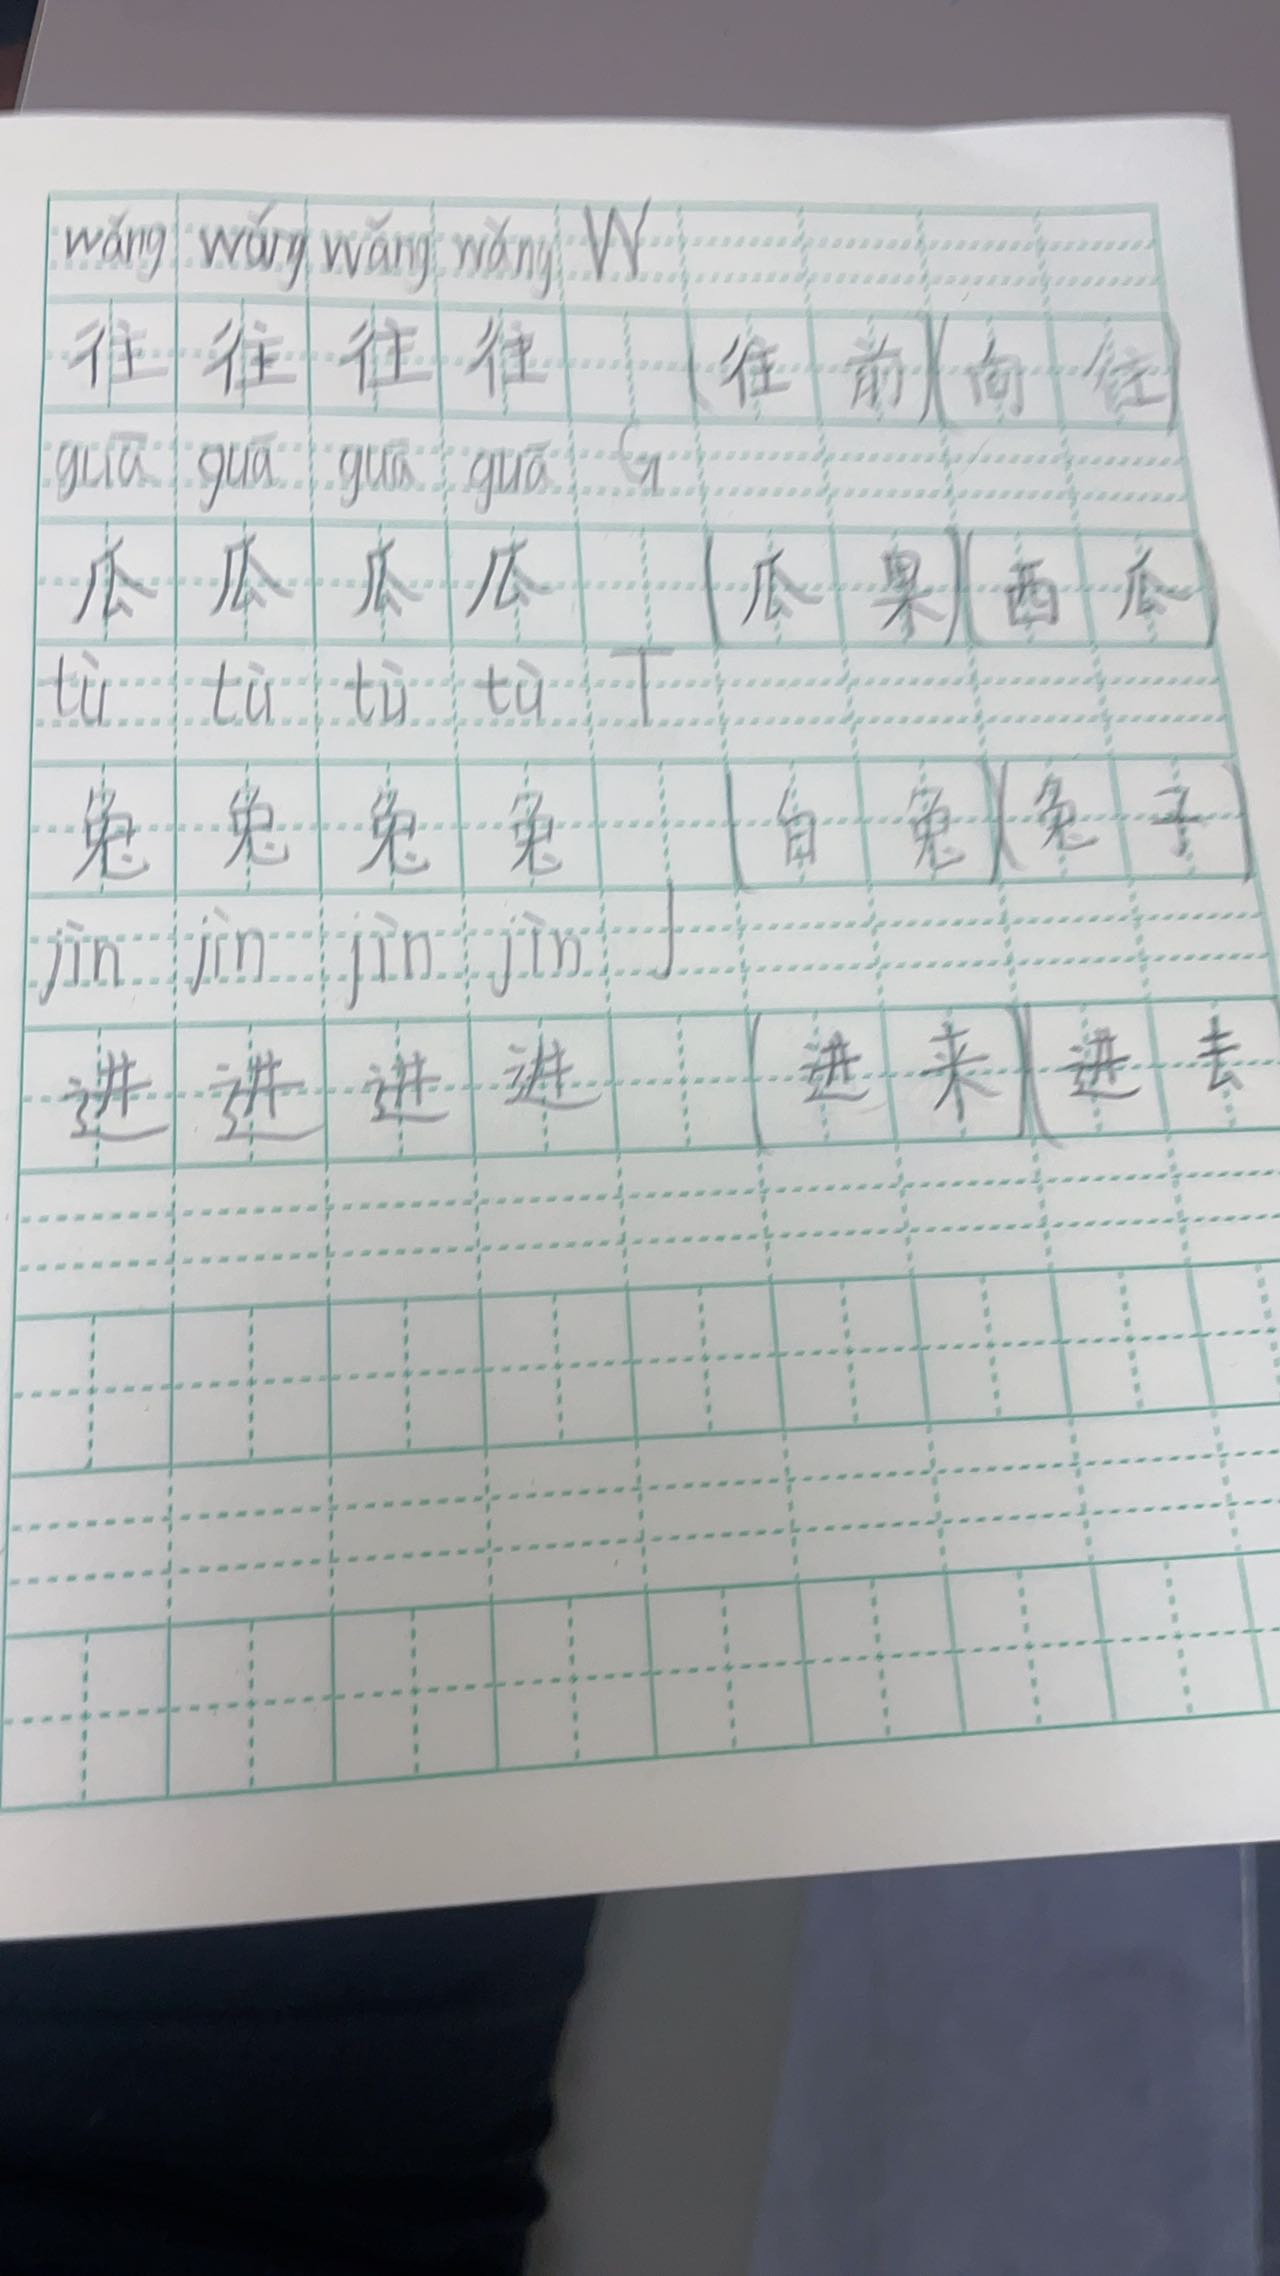 wǎng wǎng wǎng wǎng W
往 往 往 往 (往 前)(向 往)
guā guā guā guā G
瓜 瓜 瓜 瓜 (瓜 果)(西 瓜)
tù tù tù tù T
兔 兔 兔 兔 (白 兔)(兔 子)
jìn jìn jìn jìn J
进 进 进 进 (进 来)(进 去)